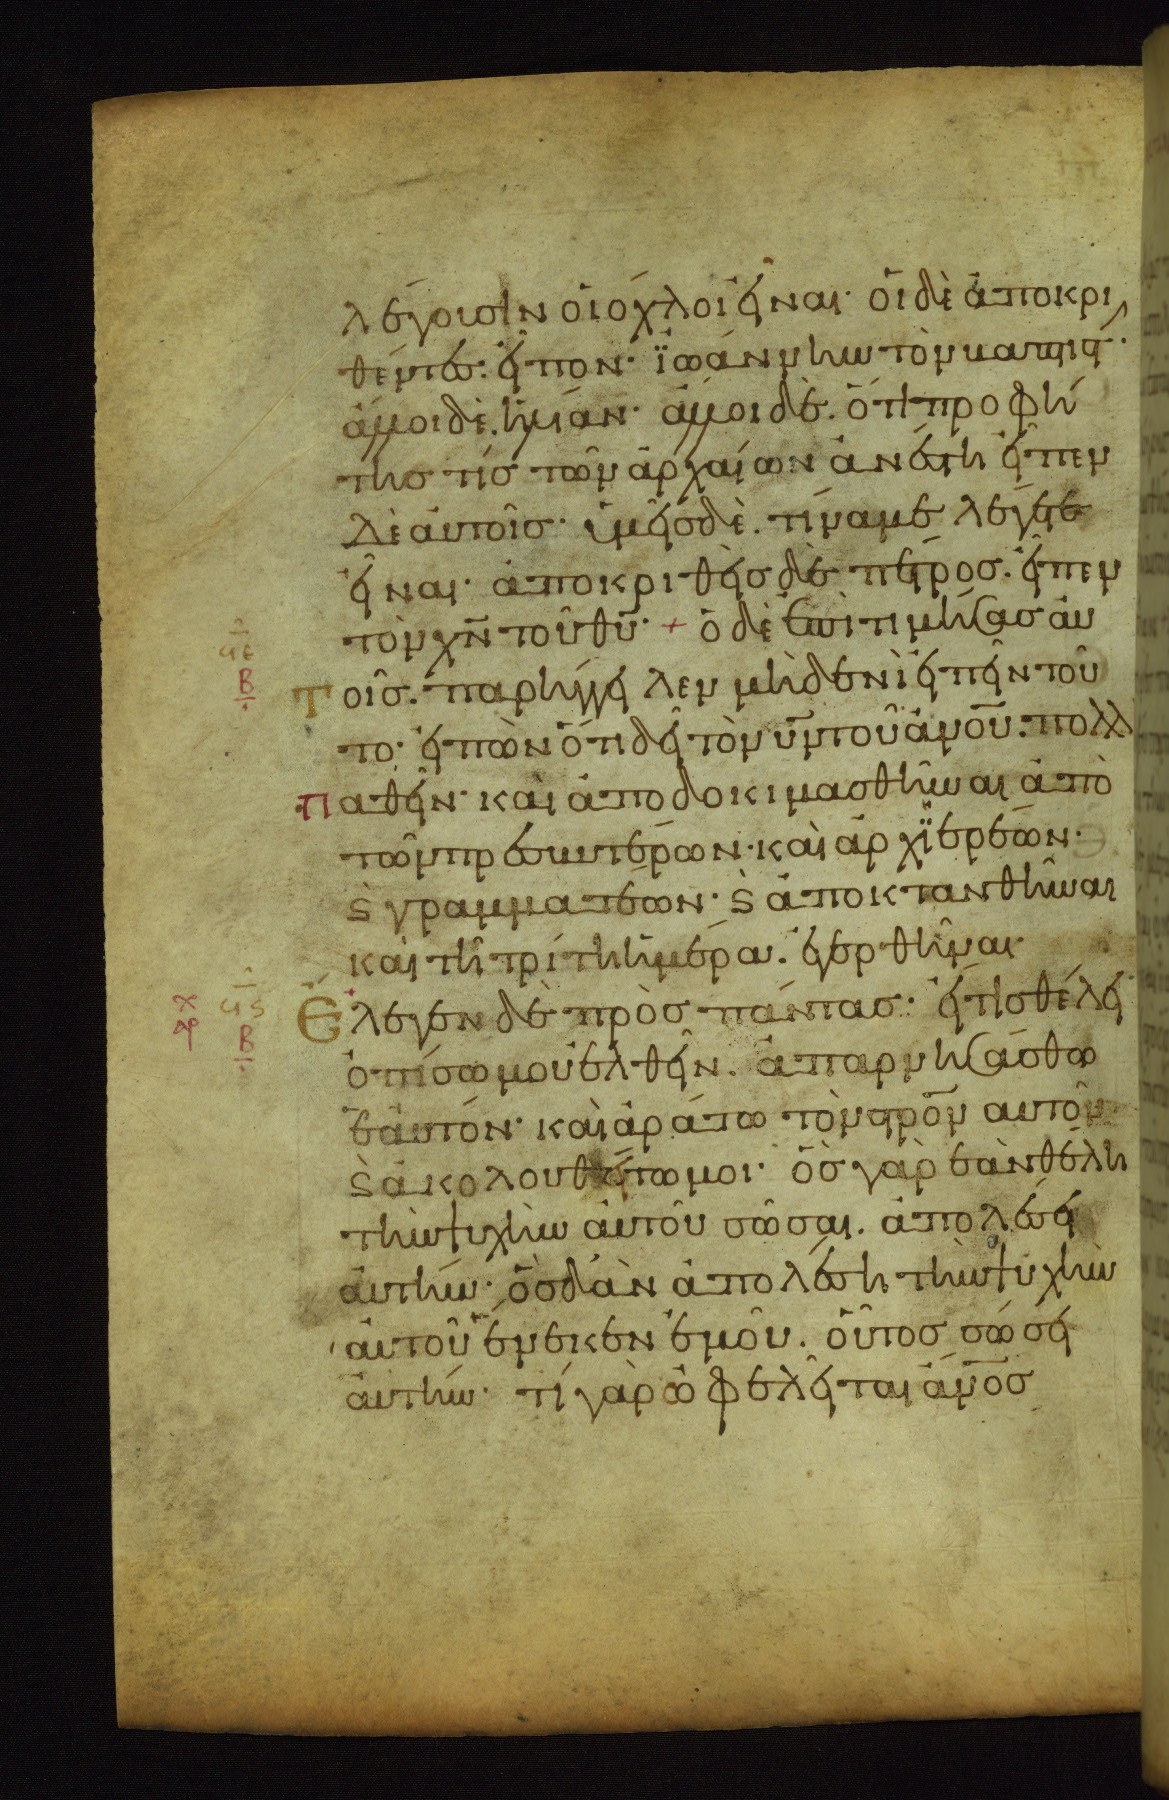 λέγουσιν οἱ ὄχλοι εἶναι· οἱ δὲ ἀποκρι
θέντες· εἶπον· ἰωάννην τὸν βαπτιστ·
ἄλλοι δὲ. ἠλίαν· ἄλλοι δὲ. ὅτι προφή
της τίς τῶν ἀρχαίων ἀνέστη εἶπεν
δὲ αὐτοῖς· ὑμεῖς δὲ. τίνα με λέγετε
εἶναι· ἀποκριθεὶς δὲ πέτρος. εἶπεν
τὸν χν τοῦ θυ· + ὁ δὲ ἐπιτιμήσας αὐ
τοῖς. παρήγγειλεν μηδενὶ εἰπεῖν τοῦ
το· εἰπὼν ὅτι δεῖ τὸν υν τοῦ ανου. πολλὰ
παθεῖν· καὶ ἀποδοκιμασθῆναι ἀπὸ
τῶν πρεσβυτέρων· καὶ ἀρχϊερέων·
ϛ γραμματέων· ϛ ἀποκτανθῆναι
καὶ τῆ τρίτη ἡμέρα. ἐγερθῆναι·
σε
β
Ἔλεγεν δὲ πρὸς πάντας· εἴ τις θέλει
ϛϛ
β
χ
αρ
ὀπίσω μου ἐλθεῖν. ἀπαρνησάσθω
ἑαυτόν· καὶ ἀράτω τὸν στρον αυτοῦ
ϛ ἀκολουθείτω μοι· ὃς γὰρ ἐὰν θέλη
τὴν ψυχὴν αὐτοῦ σῶσαι. ἀπολέσει
αὐτήν· ὃς δ' ἂν ἀπολέση τὴν ψυχὴν
αὐτοῦ ἕνεκεν ἐμοῦ. οὗτος σώσει
αὐτήν· τί γὰρ ὠφελεῖται ανος